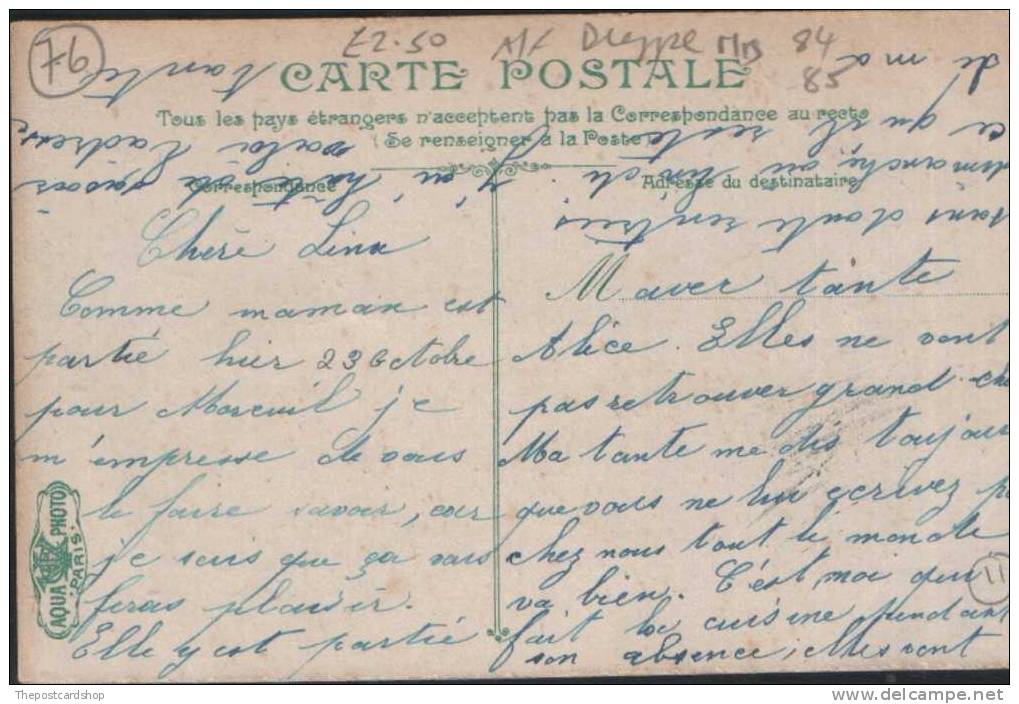 76
£2.50
A/F Dieppe
84
85
CARTE POSTALE
Tous les pays étrangers n'acceptent pas la Correspondance au recto
(Se renseigner à la Poste)
Correspondance
Adresse du destinataire
Chère Lina
Comme maman est
partie hier 23 Octobre
pour Moreuil je
m'empresse de vous
le faire savoir, car
je sais que ça vous
feras plaisir.
Elle y est partie
M aver tante
Alice. Elles ne vont
pas retrouver grand
Ma tante me dis toujour
que vous ne lui écrivez
chez nous tout le monde
va bien. C'est moi qui
fait la cuisine pendant
son absence, elles sont
sans doute rentrées
dimanche au
ce qu'il reste
voilà l'adresse
de ma
tante
11
AQUA PHOTO
PARIS
Thepostcardshop
delcampe.net